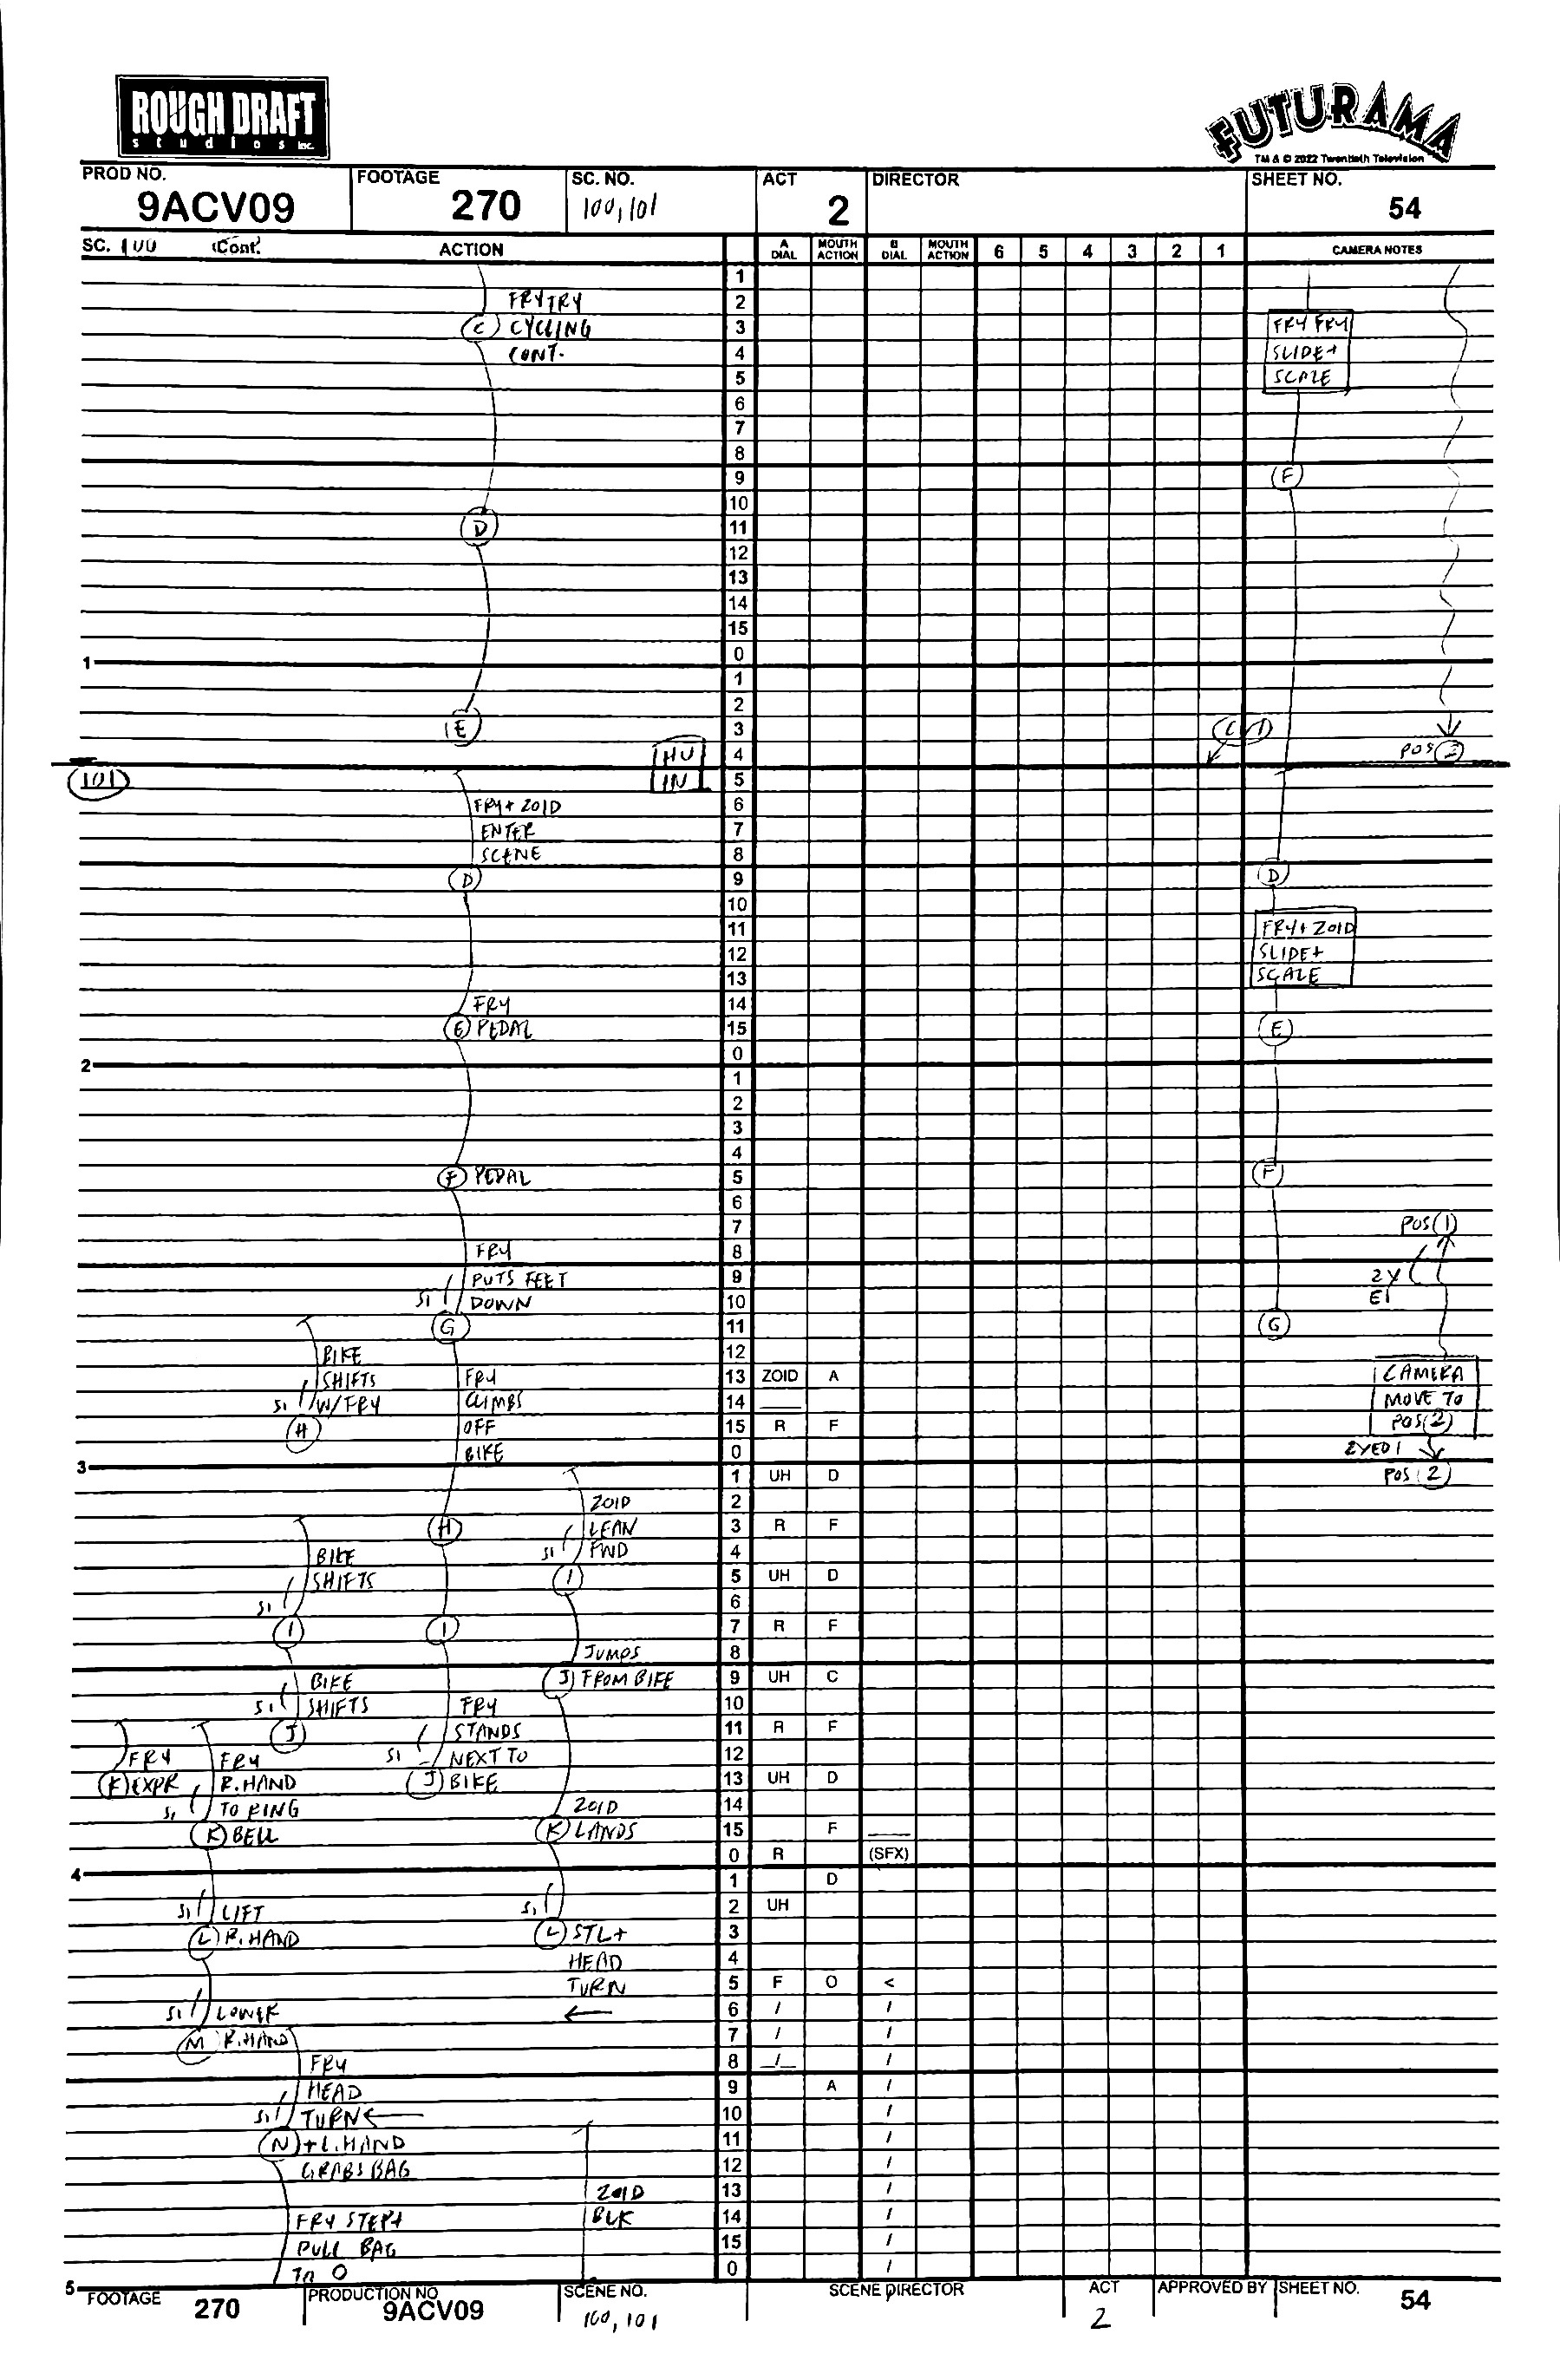 ROUGH DRAFT
studios inc.
FUTURAMA
TM & © 2022 Twentieth Television
PROD NO.
9ACV09
FOOTAGE
270
SC. NO.
100,101
ACT
2
DIRECTOR
SHEET NO.
54
SC. 100 (Cont.
ACTION
A DIAL
MOUTH ACTION
B DIAL
MOUTH ACTION
6 5 4 3 2 1
CAMERA NOTES
1
2 FRY TRY
3 C CYCLING FRY FRY
4 CONT. SLIDE+
5 SCALE
6
7
8
9 F
10
11 D
12
13
14
15
1 0
1
2
3 E
4 HU POS 2
101 5 IN
6 FRY+ ZOID
7 ENTER
8 SCENE
9 D D
10
11 FRY+ZOID
12 SLIDE+
13 SCALE
14 FRY
15 E PEDAL E
2 0
1
2
3
4
5 F PEDAL F
6
7 POS 1
8 FRY
9 PUTS FEET 2Y
10 SI DOWN EI
11 G G
12 BIKE
13 SHIFTS FRY ZOID A CAMERA
14 SI W/FRY CLIMBS MOVE TO
15 H OFF R F POS 2
3 0 BIKE 2YEDI
1 UH D POS 2
2 ZOID
3 H LEAN R F
4 BIKE SI FWD
5 SHIFTS I UH D
6 SI
7 I I R F
8 JUMPS
9 BIKE J FROM BIKE UH C
10 SI SHIFTS FRY
11 J STANDS R F
12 FRY FRY SI NEXT TO
13 K EXPR R.HAND J BIKE UH D
14 SI TO RING ZOID
15 K BELL K LANDS F
4 0 R (SFX)
1 D
2 SI LIFT SI UH
3 L R.HAND L STL+
4 HEAD
5 TURN F O <
6 SI LOWER ← / /
7 M R.HAND / /
8 FRY / /
9 HEAD A /
10 SI TURN ← /
11 N +L.HAND /
12 GRABS BAG /
13 ZOID /
14 FRY STEP+ BLK /
15 PULL BAG /
5 0 TO O /
FOOTAGE
270
PRODUCTION NO
9ACV09
SCENE NO.
100, 101
SCENE DIRECTOR
ACT
2
APPROVED BY
SHEET NO.
54